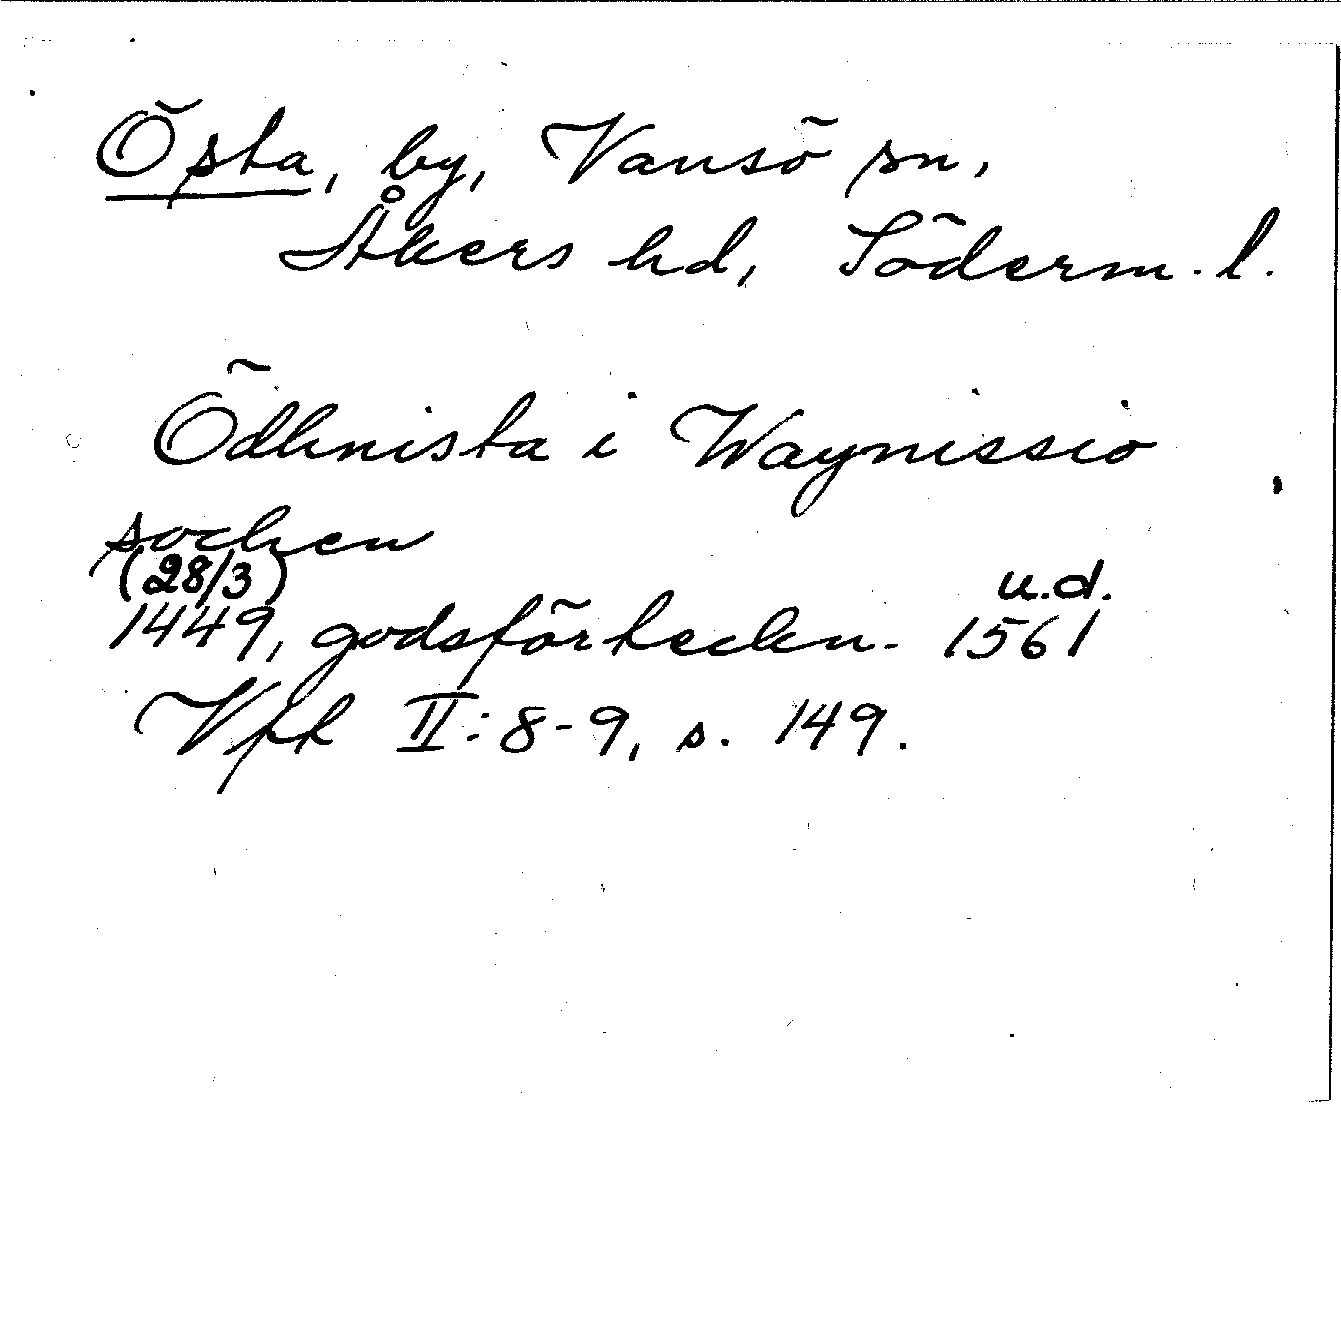 Östa, by, Vansö sn,
Åkers hd, Söderm. l.
Ödhnista i Waynissio
sochen
(28/3) u.d.
1449, godsförteckn. 1561
Vpk II: 8-9, s. 149.